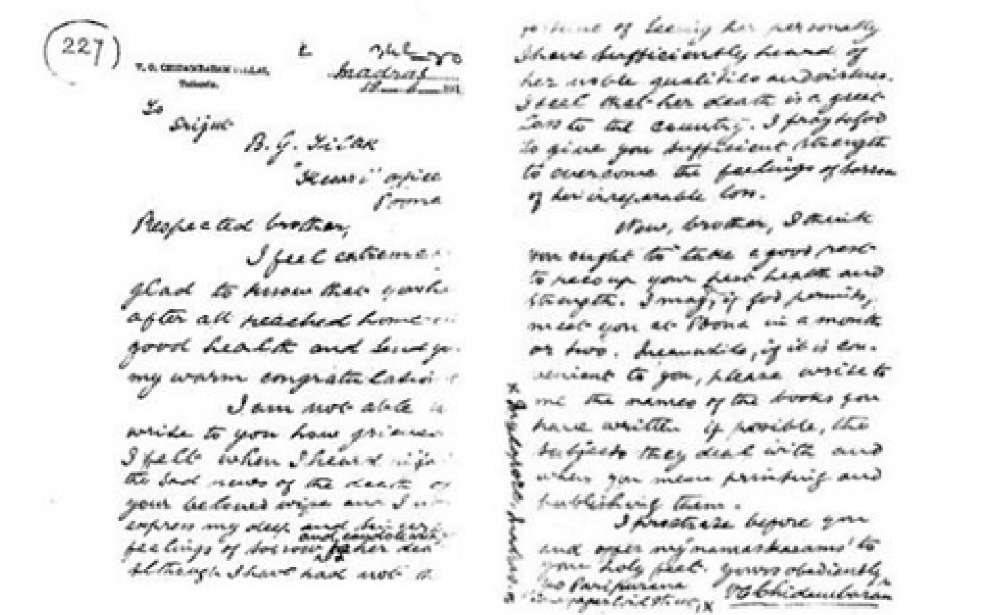 227
V. O. CHIDAMBARAM PILLAI,
Tuticorin.
Madras
To
Srijut
B. G. Tilak
"Kesari" office
Poona
Respected brother,
I feel extreme
glad to know that you ha
after all reached home
good health and send yo
my warm congratulation
I am not able
write to you how grieved
I felt when I heard
the sad news of the death of
your beloved wife and I
express my deep and sincere
and condolence
feelings of sorrow her dea
although I have had not the
of seeing her personally
I have sufficiently heard of
her noble qualities and virtues.
I feel that her death is a great
loss to the country. I pray to god
to give you sufficient strength
to overcome the feelings of sorrow
of her irreparable loss.
Now, brother, I think
you ought to take a good rest
to recoup your past health and
strength. I may, if god permits,
meet you at Poona in a month
or two. Meanwhile, if it is con-
venient to you, please write to
me the names of the books you
have written if possible, the
subjects they deal with and
when you mean printing and
publishing them.
I prostrate before you
and offer my 'namaskarams' to
your holy feet. Yours obediently
Paripurana
V. O. Chidambaram
x Mylapore, Madras.